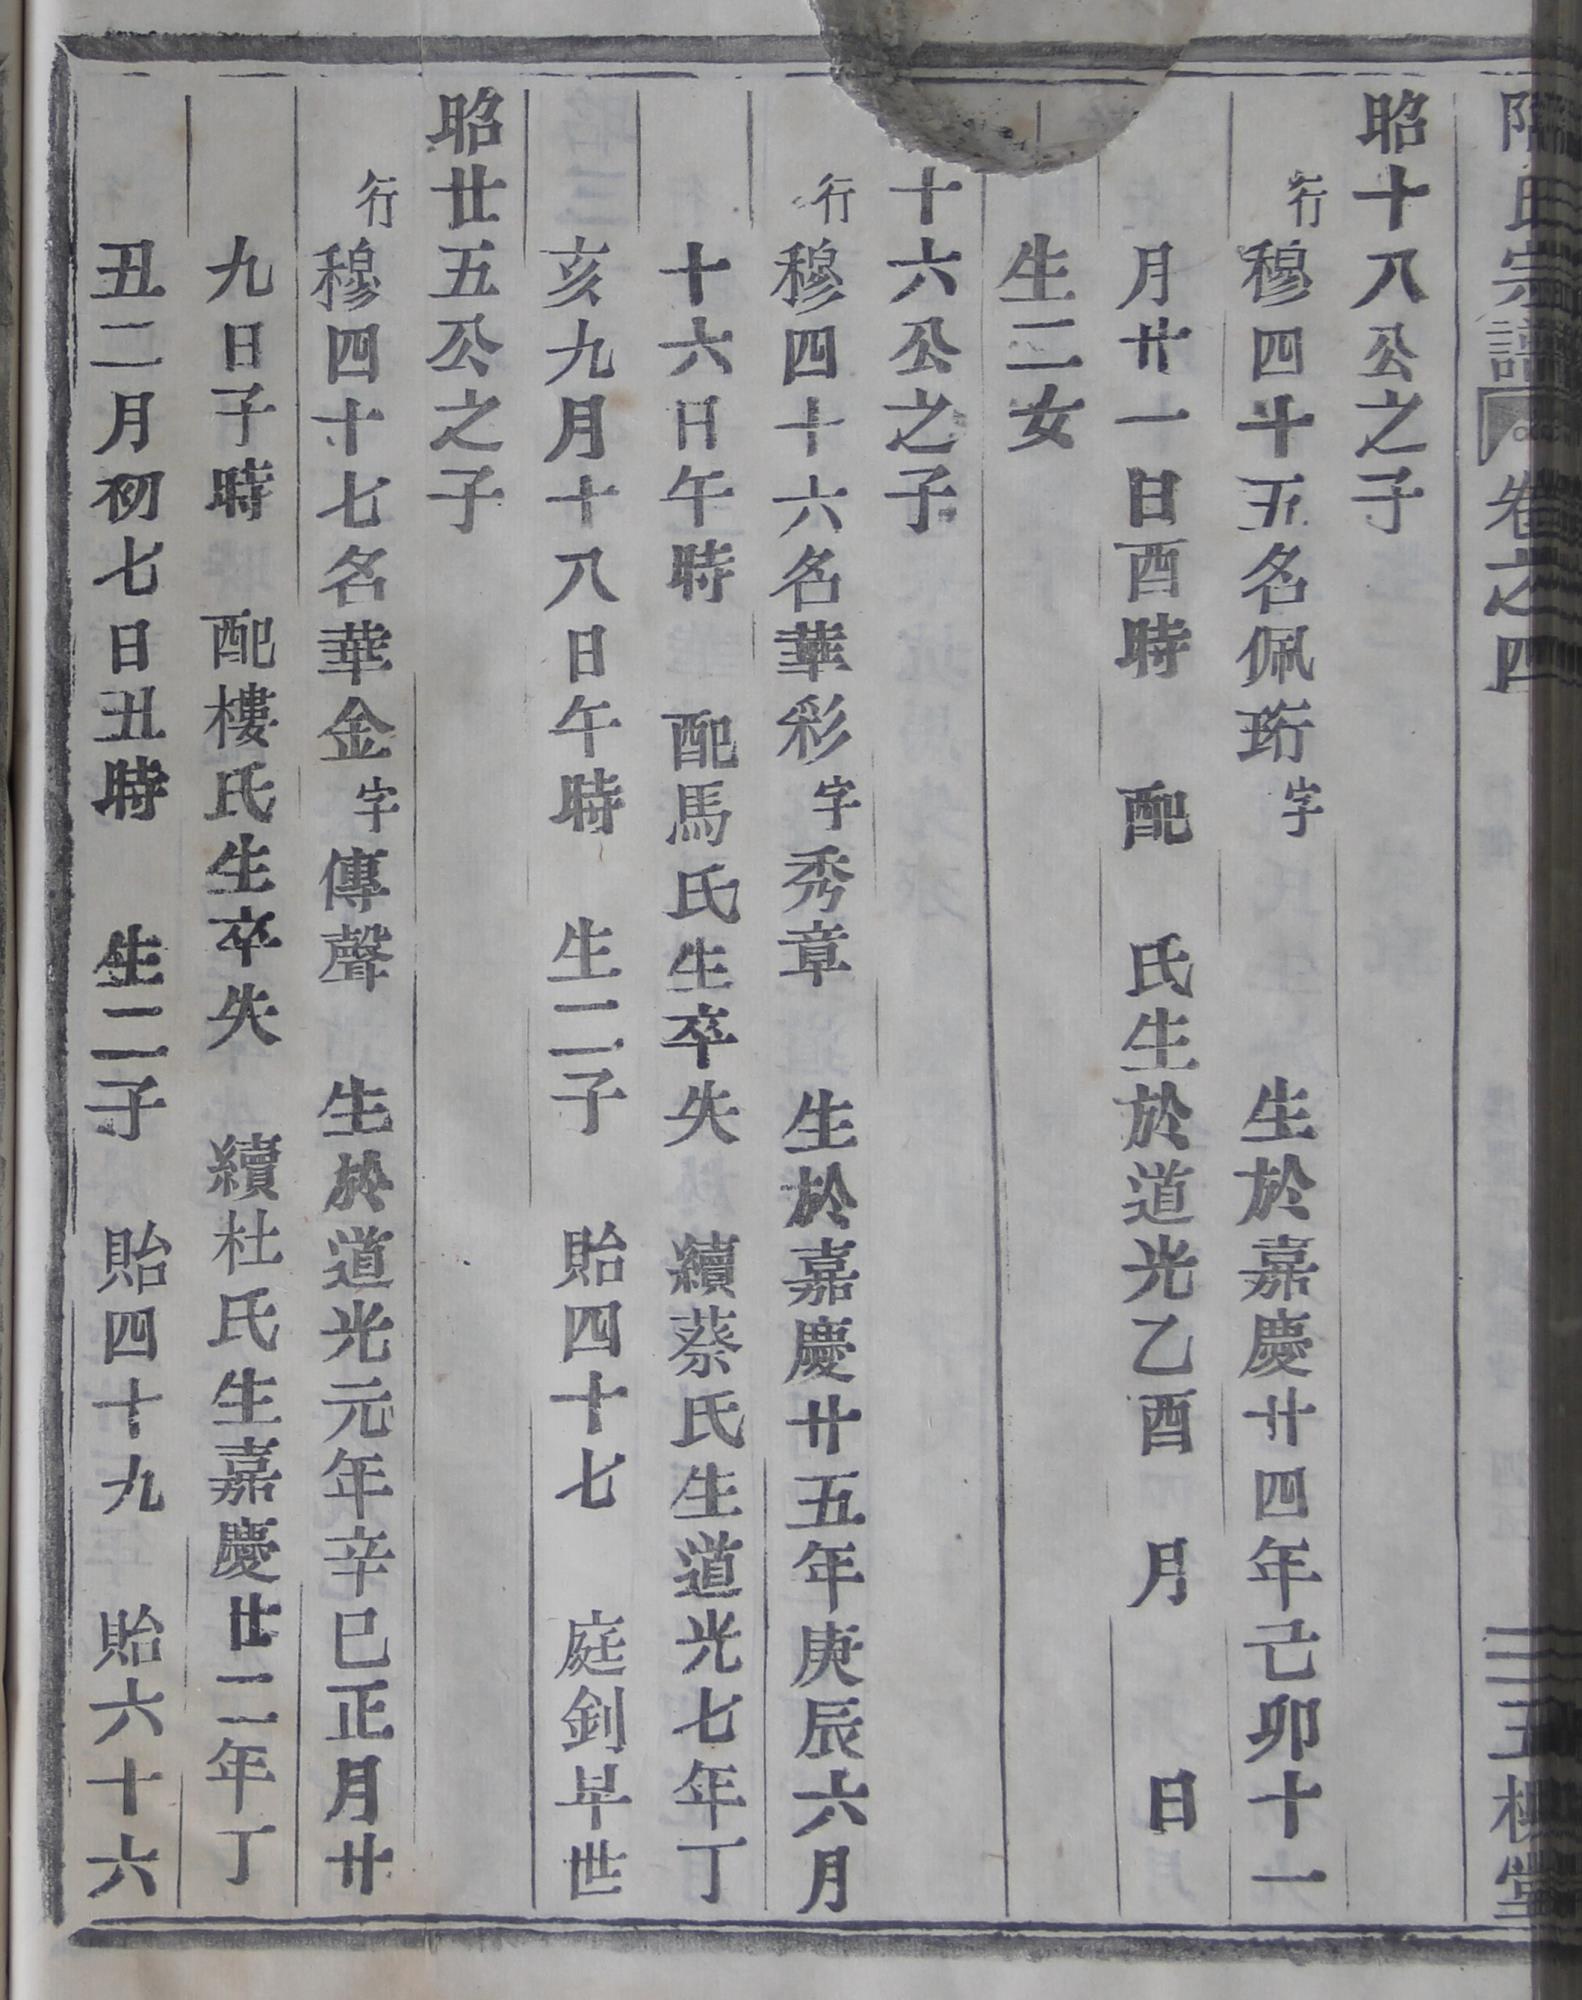 氏宗譜 卷之四
昭十八公之子
行穆四十五名佩珩字 生於嘉慶廿四年己卯十一
月廿一日酉時 配 氏生於道光乙酉 月 日
生二女
十六公之子
行穆四十六名華彩字秀章 生於嘉慶廿五年庚辰六月
十六日午時 配馬氏生卒失 續蔡氏生道光七年丁
亥九月十八日午時 生二子 貽四十七 庭釗早世
昭廿五公之子
行穆四十七名華金字傳聲 生於道光元年辛巳正月廿
九日子時 配樓氏生卒失 續杜氏生嘉慶廿二年丁
丑二月初七日丑時 生二子 貽四十九 貽六十六